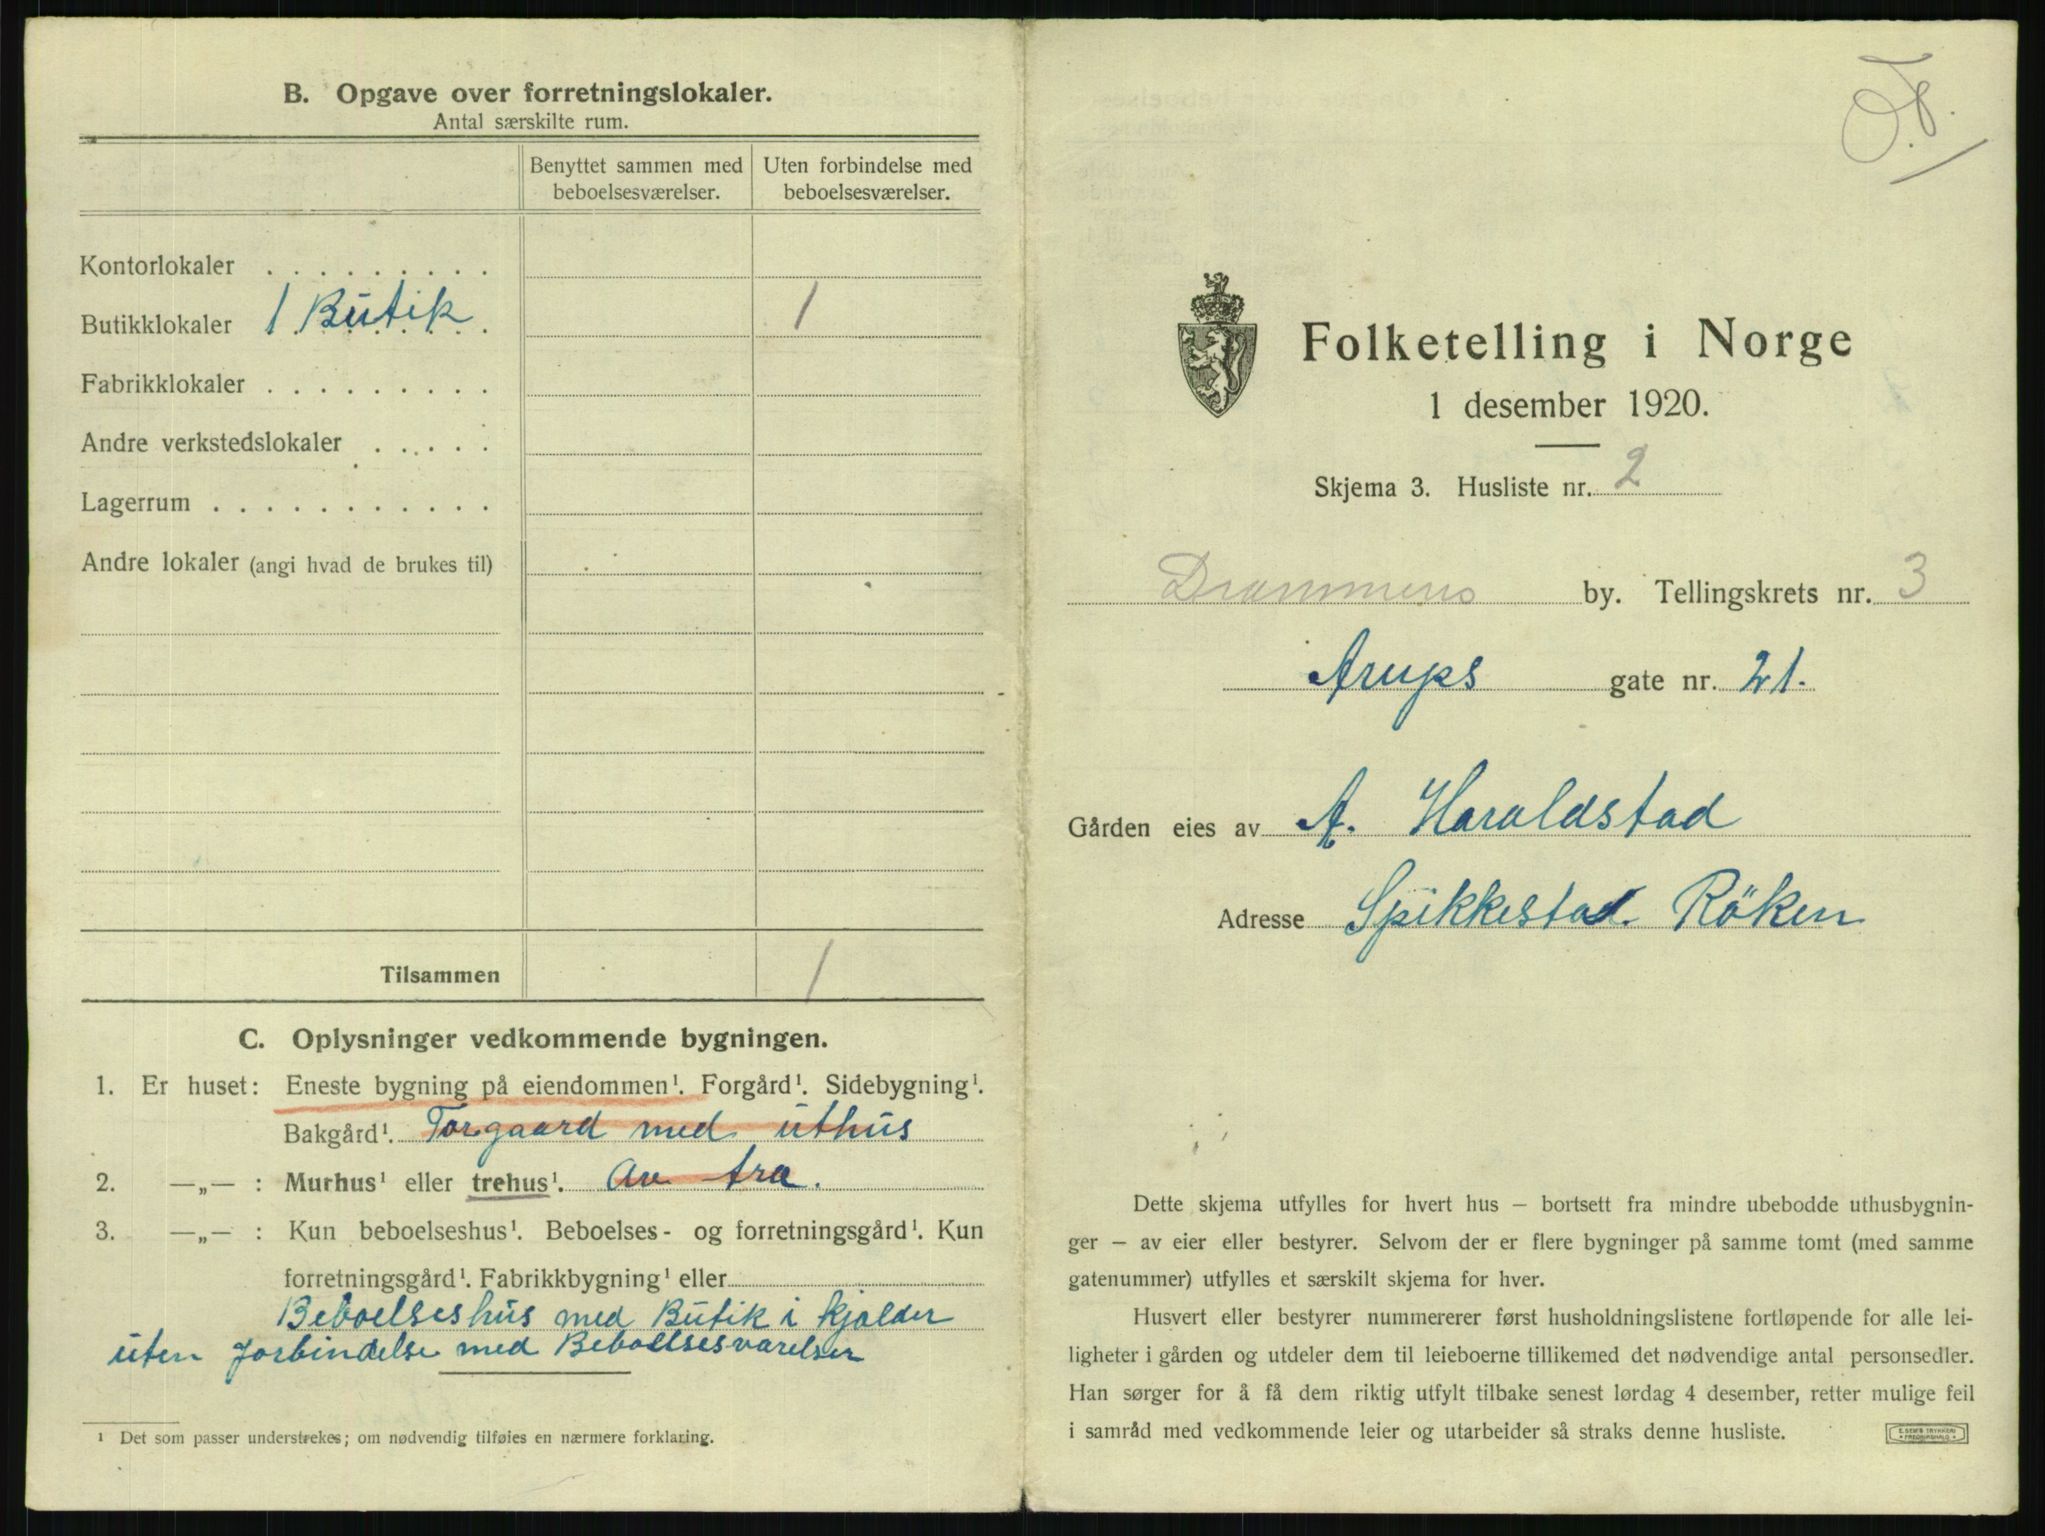 B. Opgave over forretningslokaler.
Antal særskilte rum.
Benyttet sammen med beboelsesværelser.
Uten forbindelse med beboelsesværelser.
Kontorlokaler . . . . . . . . .
Butikklokaler 1 Butik 1
Fabrikklokaler . . . . . . . . .
Andre verkstedslokaler . . . . .
Lagerrum . . . . . . . . . . .
Andre lokaler (angi hvad de brukes til)
Tilsammen 1
C. Oplysninger vedkommende bygningen.
1. Er huset: Eneste bygning på eiendommen¹. Forgård¹. Sidebygning¹.
Bakgård¹. Forgaard med uthus
2. —„— : Murhus¹ eller trehus¹. Av træ.
3. —„— : Kun beboelseshus¹. Beboelses- og forretningsgård¹. Kun
forretningsgård¹. Fabrikkbygning¹ eller
Beboelseshus med Butik i kjælder
uten forbindelse med Beboelsesværelser
¹ Det som passer understrekes; om nødvendig tilføies en nærmere forklaring.
Folketelling i Norge
1 desember 1920.
Skjema 3. Husliste nr. 2
Drammens by. Tellingskrets nr. 3
Arups gate nr. 21.
Gården eies av A. Haraldstad
Adresse Spikkestad. Röken
Dette skjema utfylles for hvert hus – bortsett fra mindre ubebodde uthusbygnin-
ger – av eier eller bestyrer. Selvom der er flere bygninger på samme tomt (med samme
gatenummer) utfylles et særskilt skjema for hver.
Husvert eller bestyrer nummererer først husholdningslistene fortløpende for alle lei-
ligheter i gården og utdeler dem til leieboerne tillikemed det nødvendige antal personsedler.
Han sørger for å få dem riktig utfylt tilbake senest lørdag 4 desember, retter mulige feil
i samråd med vedkommende leier og utarbeider så straks denne husliste.
E. SEM'S TRYKKERI
FREDRIKSHALD